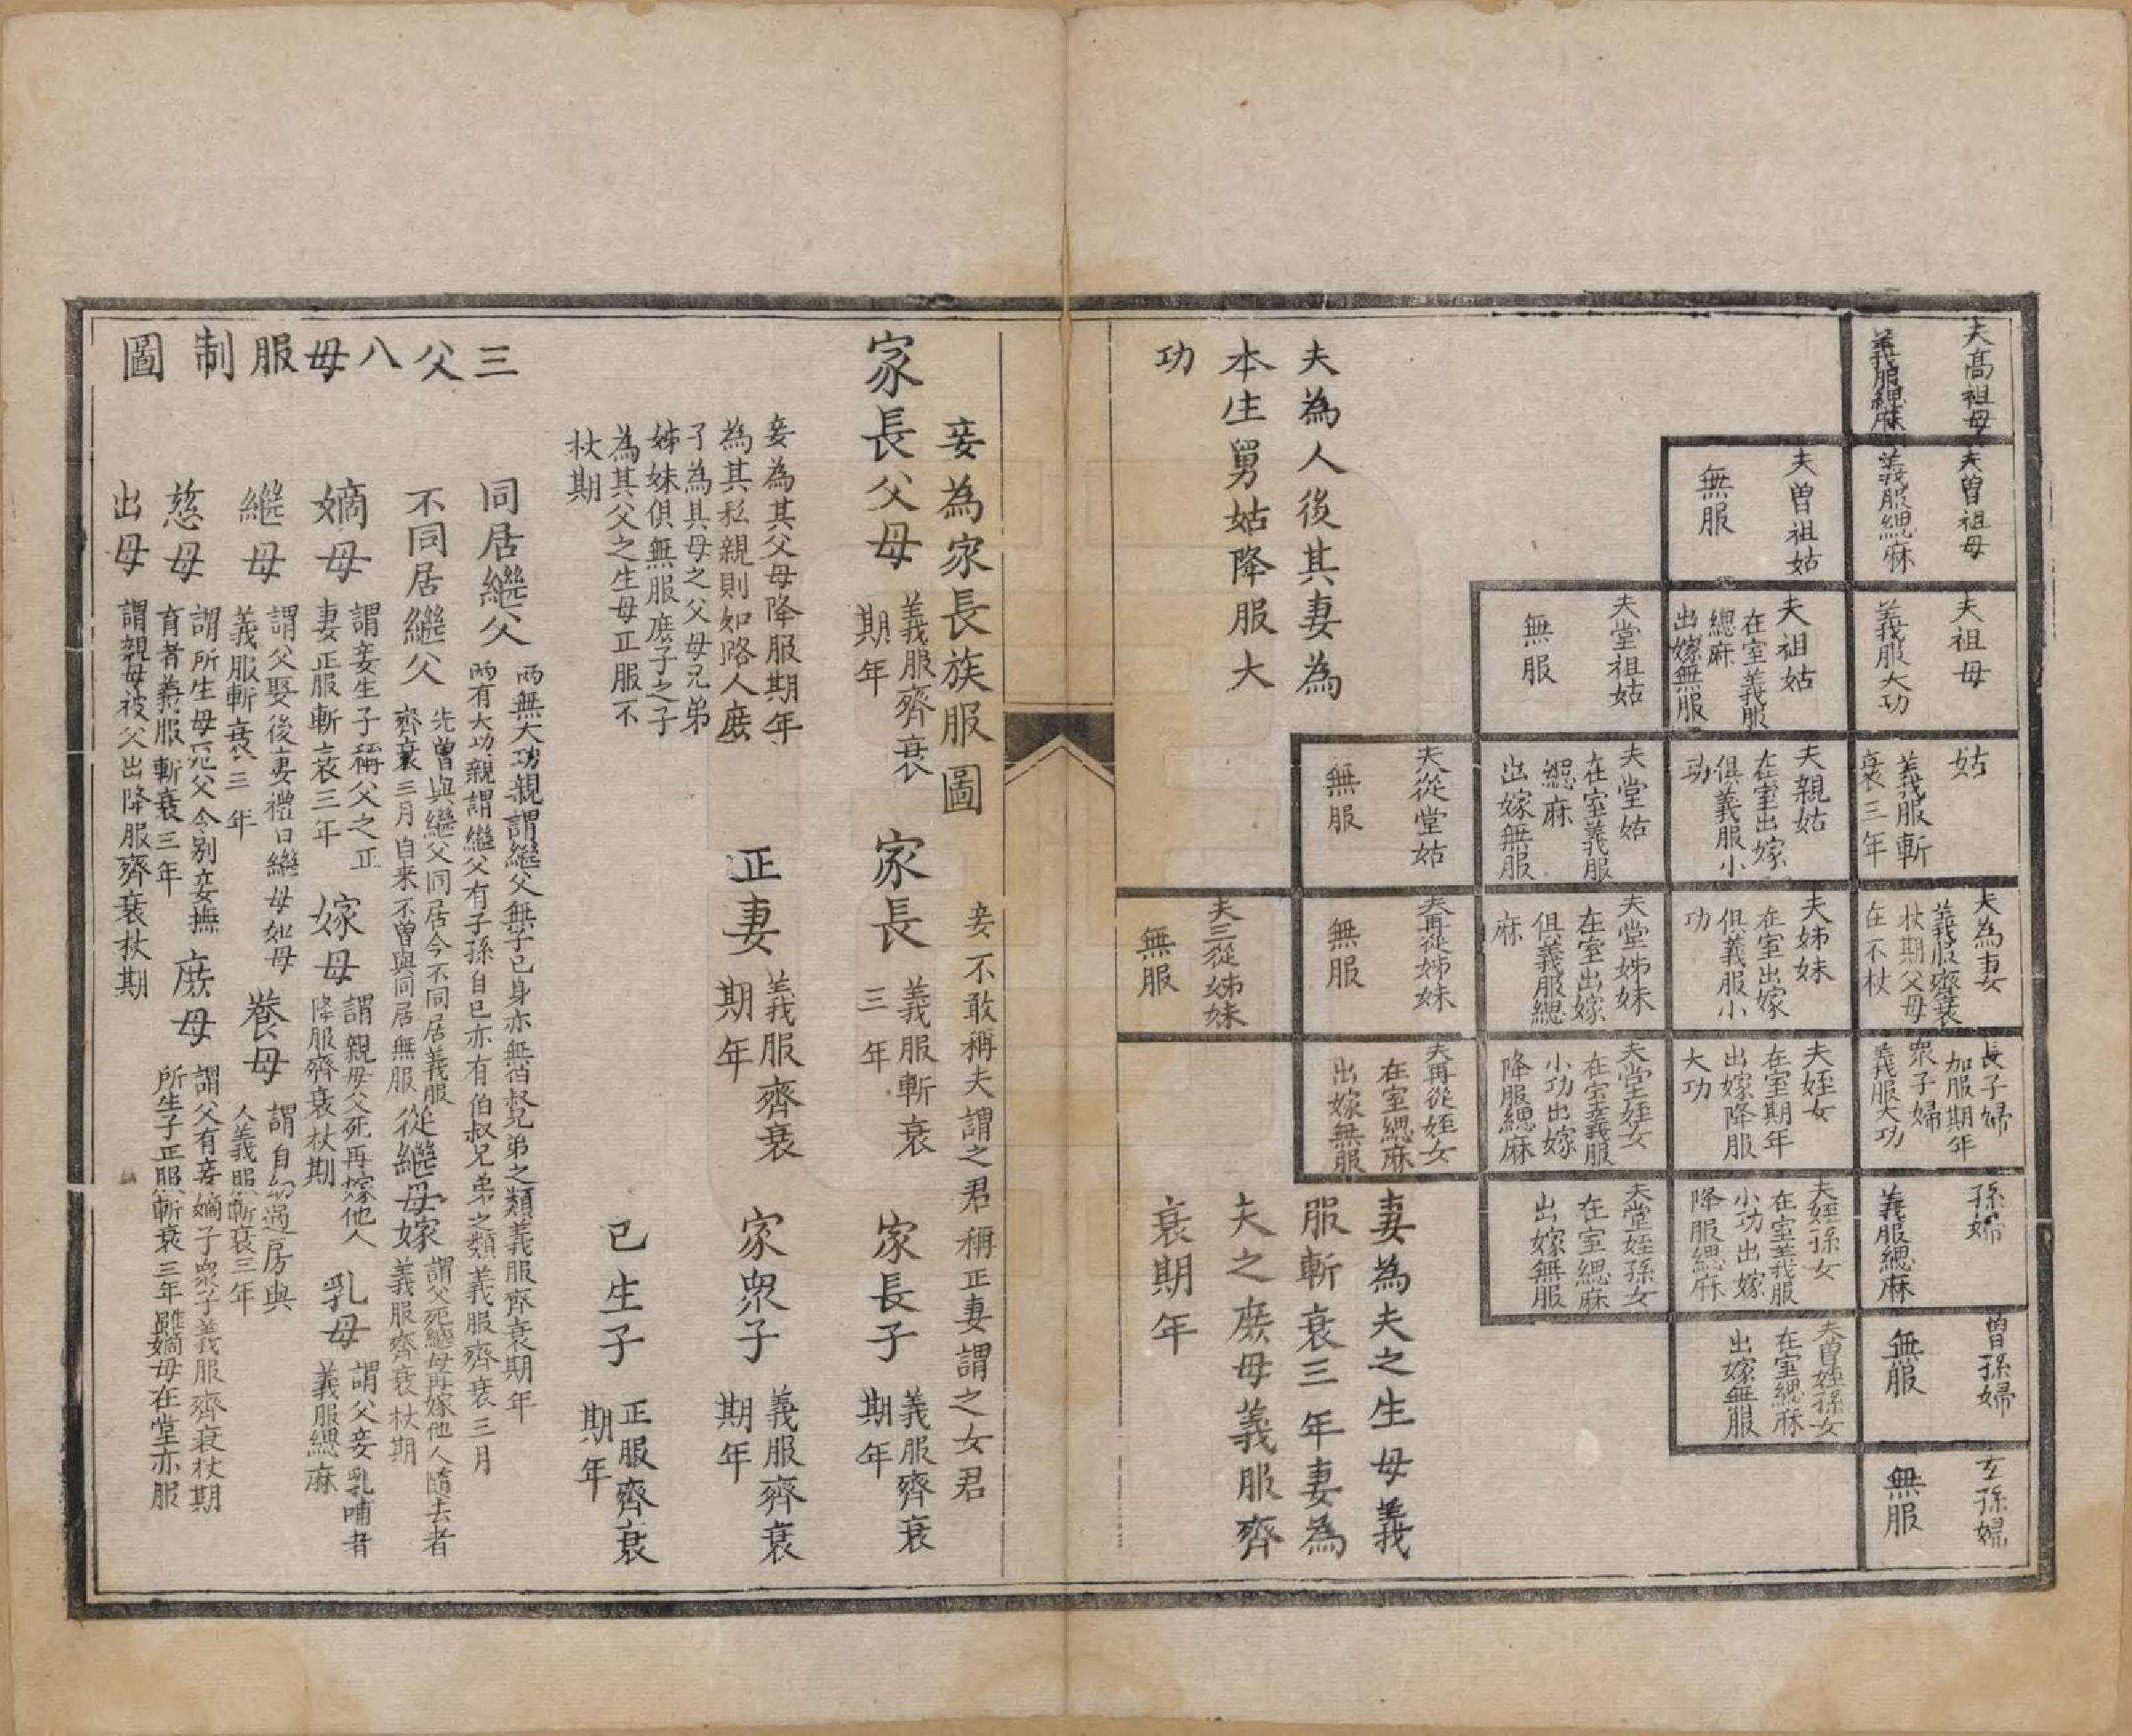 夫高祖母
義服緦麻
夫曾祖母
義服緦麻
夫曾祖姑
無服
夫祖母
義服大功
夫祖姑
在室義服
緦麻
出嫁無服
夫堂祖姑
無服
姑
義服斬
衰三年
夫親姑
在室出嫁
俱義服小
功
夫堂姑
在室義服
緦麻
出嫁無服
夫從堂姑
無服
夫為妻
義服齊衰
杖期父母
在不杖
夫姊妹
在室出嫁
俱義服小
功
夫堂姊妹
在室出嫁
俱義服緦
麻
夫再從姊妹
無服
夫三從姊妹
無服
長子婦
加服期年
眾子婦
義服大功
夫姪女
在室期年
出嫁降服
大功
夫堂姪女
在室義服
小功出嫁
降服緦麻
夫再從姪女
在室緦麻
出嫁無服
孫婦
義服緦麻
夫姪孫女
在室義服
小功出嫁
降服緦麻
夫堂姪孫女
在室緦麻
出嫁無服
曾孫婦
無服
夫曾姪孫女
在室緦麻
出嫁無服
玄孫婦
無服
夫為人後其妻為
本生舅姑降服大
功
妻為夫之生母義
服斬衰三年妻為
夫之庶母義服齊
衰期年
妾為家長族服圖
妾不敢稱夫謂之君稱正妻謂之女君
家長父母
義服齊衰
期年
家長
義服斬衰
三年
家長子
義服齊衰
期年
妾為其父母降服期年
為其私親則如路人庶
子為其母之父母兄弟
姊妹俱無服庶子之子
為其父之生母正服不
杖期
正妻
義服齊衰
期年
家眾子
義服齊衰
期年
己生子
正服齊衰
期年
三父八母服制圖
同居繼父
兩無大功親謂繼父無子己身亦無伯叔兄弟之類義服齊衰期年
兩有大功親謂繼父有子孫自己亦有伯叔兄弟之類義服齊衰三月
不同居繼父
先曾與繼父同居今不同居義服
齊衰三月自來不曾與同居無服
從繼母嫁
謂父死繼母再嫁他人隨去者
義服齊衰杖期
嫡母
謂妾生子稱父之正
妻正服斬衰三年
嫁母
謂親母父死再嫁他人
降服齊衰杖期
乳母
謂父妾乳哺者
義服緦麻
繼母
謂父娶後妻禮曰繼母如母
義服斬衰三年
養母
謂自幼過房與
人義服斬衰三年
慈母
謂所生母死父令別妾撫
育者義服斬衰三年
庶母
謂父有妾嫡子眾子義服齊衰杖期
所生子正服斬衰三年雖嫡母在堂亦服
出母
謂親母被父出降服齊衰杖期